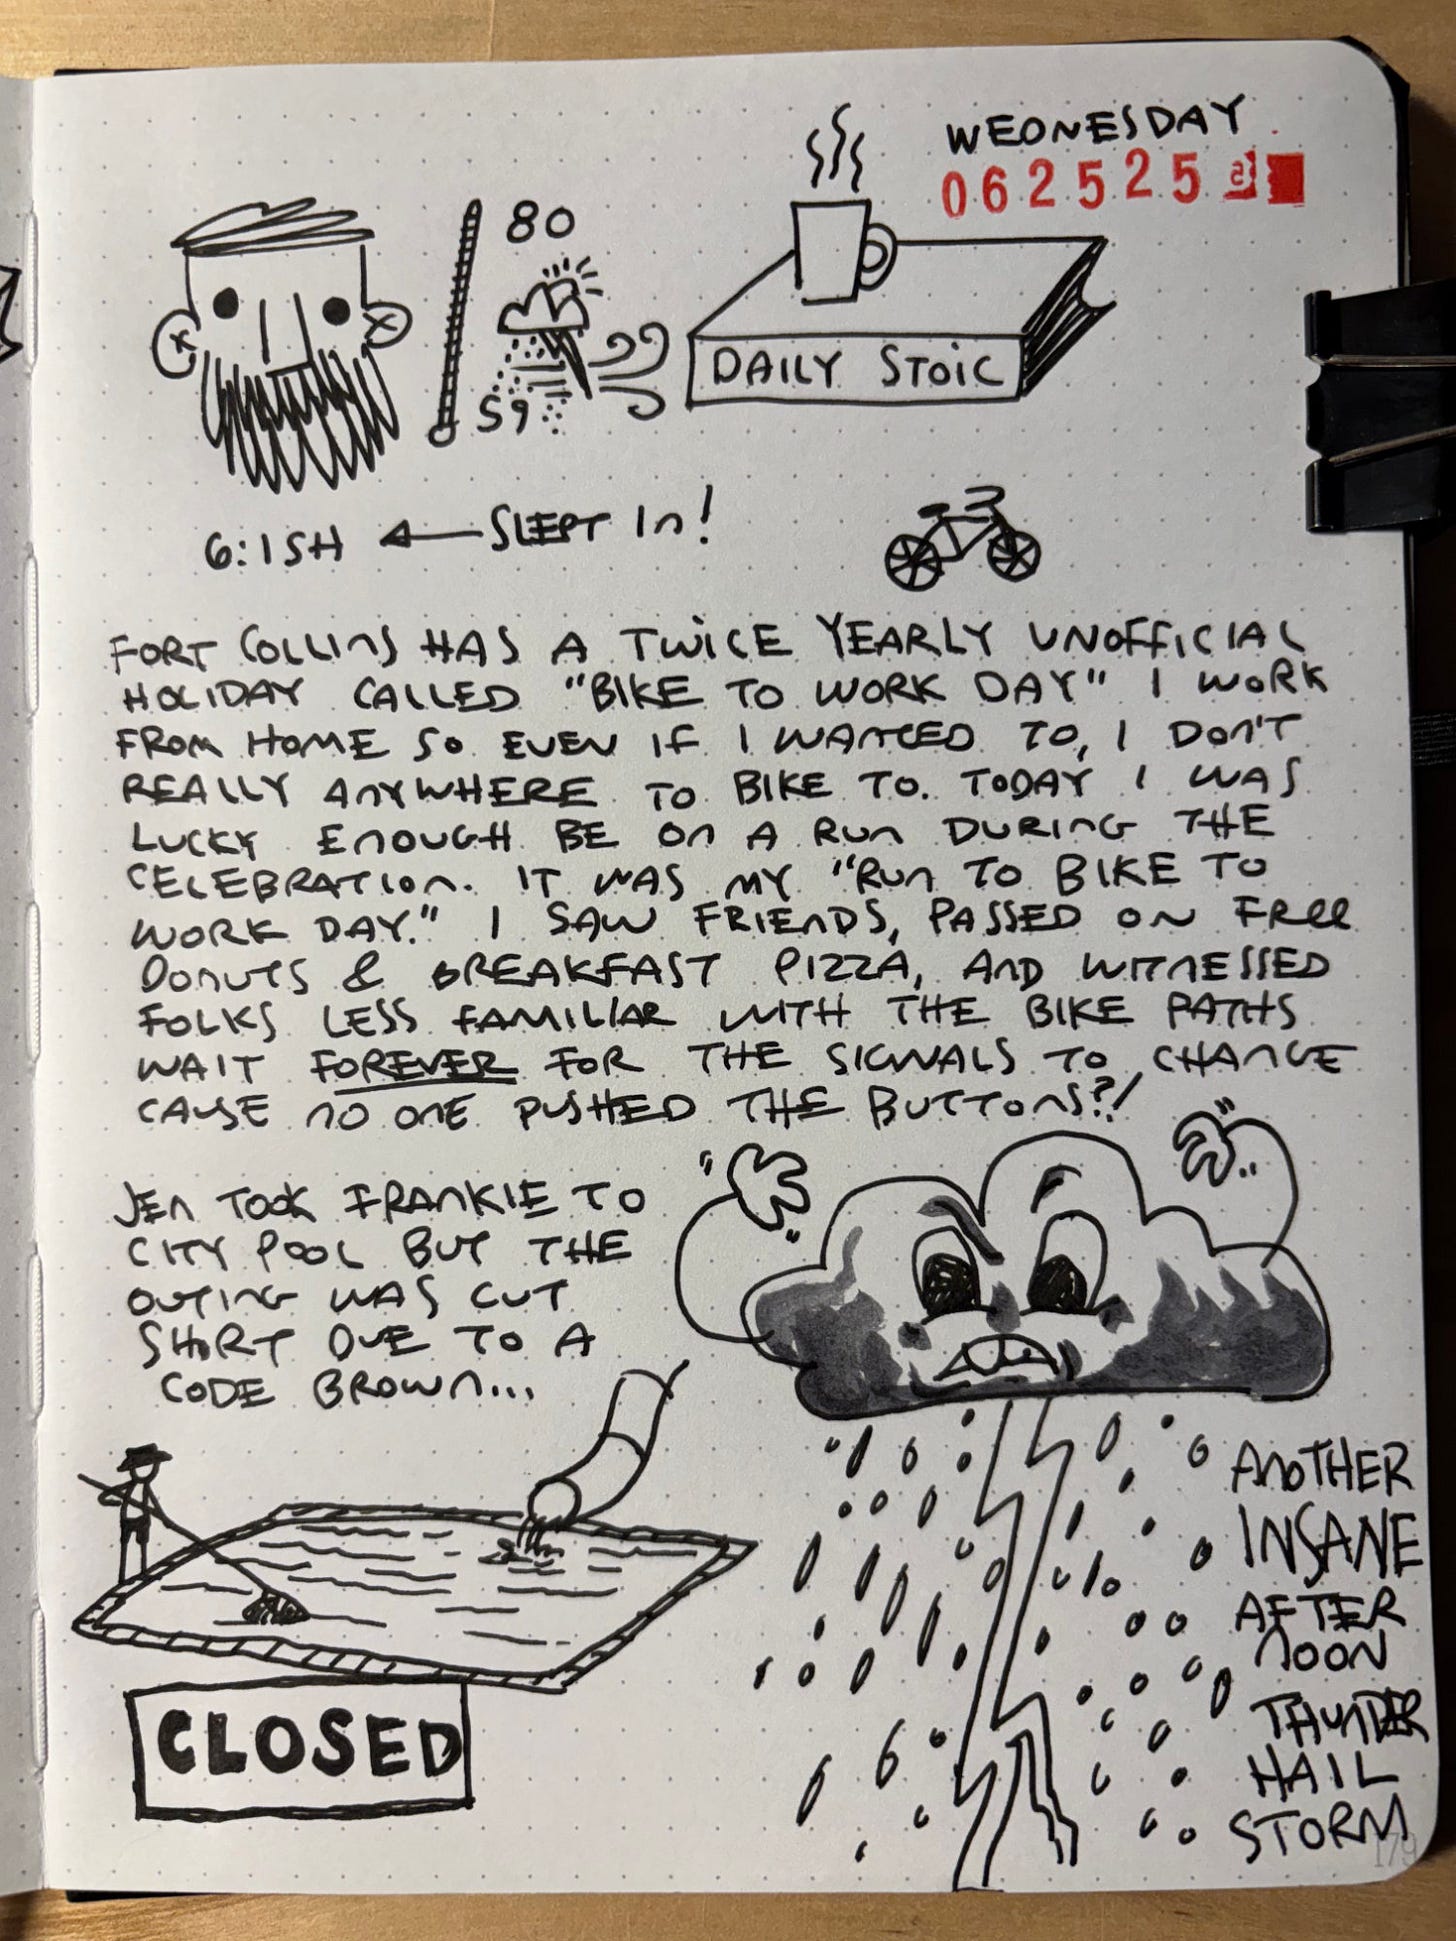 WEDNESDAY
062525
80
59
DAILY STOIC
6:15H ← SLEPT IN!
FORT COLLINS HAS A TWICE YEARLY UNOFFICIAL
HOLIDAY CALLED "BIKE TO WORK DAY" I WORK
FROM HOME SO EVEN IF I WANTED TO, I DON'T
REALLY ANYWHERE TO BIKE TO. TODAY I WAS
LUCKY ENOUGH BE ON A RUN DURING THE
CELEBRATION. IT WAS MY "RUN TO BIKE TO
WORK DAY." I SAW FRIENDS, PASSED ON FREE
DONUTS & BREAKFAST PIZZA, AND WITNESSED
FOLKS LESS FAMILIAR WITH THE BIKE PATHS
WAIT FOREVER FOR THE SIGNALS TO CHANGE
CAUSE NO ONE PUSHED THE BUTTONS?!
JEN TOOK FRANKIE TO
CITY POOL BUT THE
OUTING WAS CUT
SHORT DUE TO A
CODE BROWN...
CLOSED
ANOTHER
INSANE
AFTER
NOON
THUNDER
HAIL
STORM
179